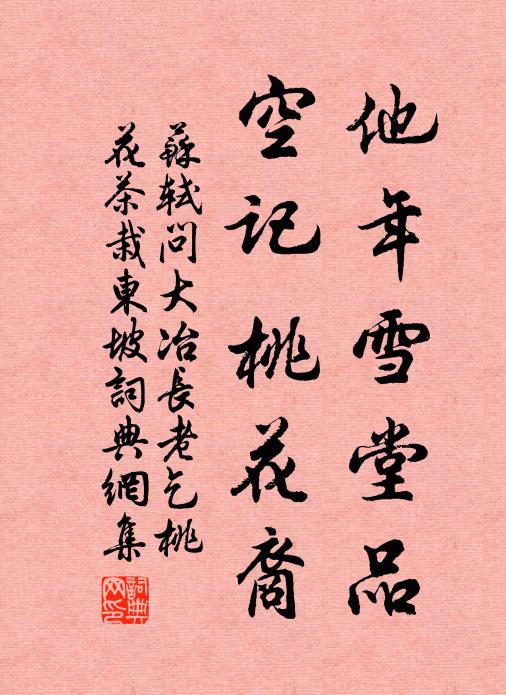 他年雪堂品
空記桃花裔
蘇軾問大冶長老乞桃
花茶栽東坡詞典網集
詞典網印